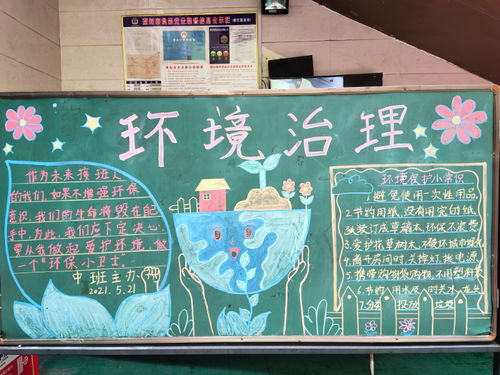 环境治理
作为未来接班人
的我们,如果不增强环保
意识,我们的生命将毁在自己
手中,为此,我们应下定决心,
要从我做起爱护环境,做
一个“环保小卫士”。
中班主办
2021.5.21
环境保护小常识
1.避免使用一次性用品。
2.节约用纸,没有用完的纸
张装订成草稿本,环保不浪费
3.爱护花草树木,不破坏城市绿化
4.离开房间时,关掉灯,拔电源
5.携带购物袋购物,不用塑料袋
6.节约用水及时关水龙头
7.分类投放垃圾